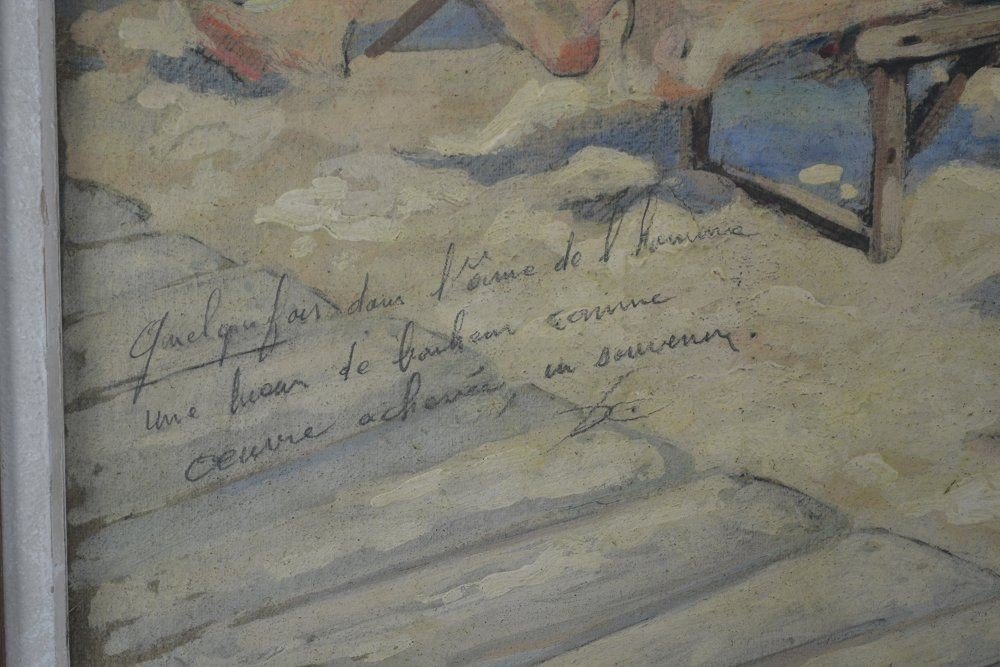 Quelquefois dans l'âme de l'homme
une lueur de bonheur comme
oeuvre achevée, un souvenir.